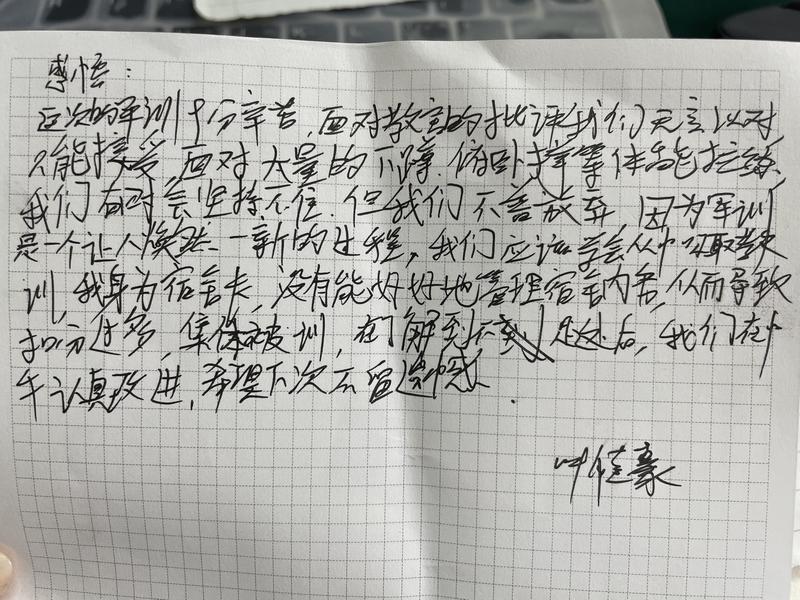 感悟：
这次的军训十分辛苦，面对教官的批评我们无言以对
只能接受，面对大量的下蹲、俯卧撑等体能拉练，
我们有时会坚持不住．但我们不言放弃 因为军训
是一个让人焕然一新的过程，我们应该学会从中吸取教
训，我身为宿舍长，没有能好好地管理宿舍内务，从而导致
扣分过多，集体被训，在了解到不足处后，我们在中
午认真改进，希望下次不留遗憾．
叶佳豪